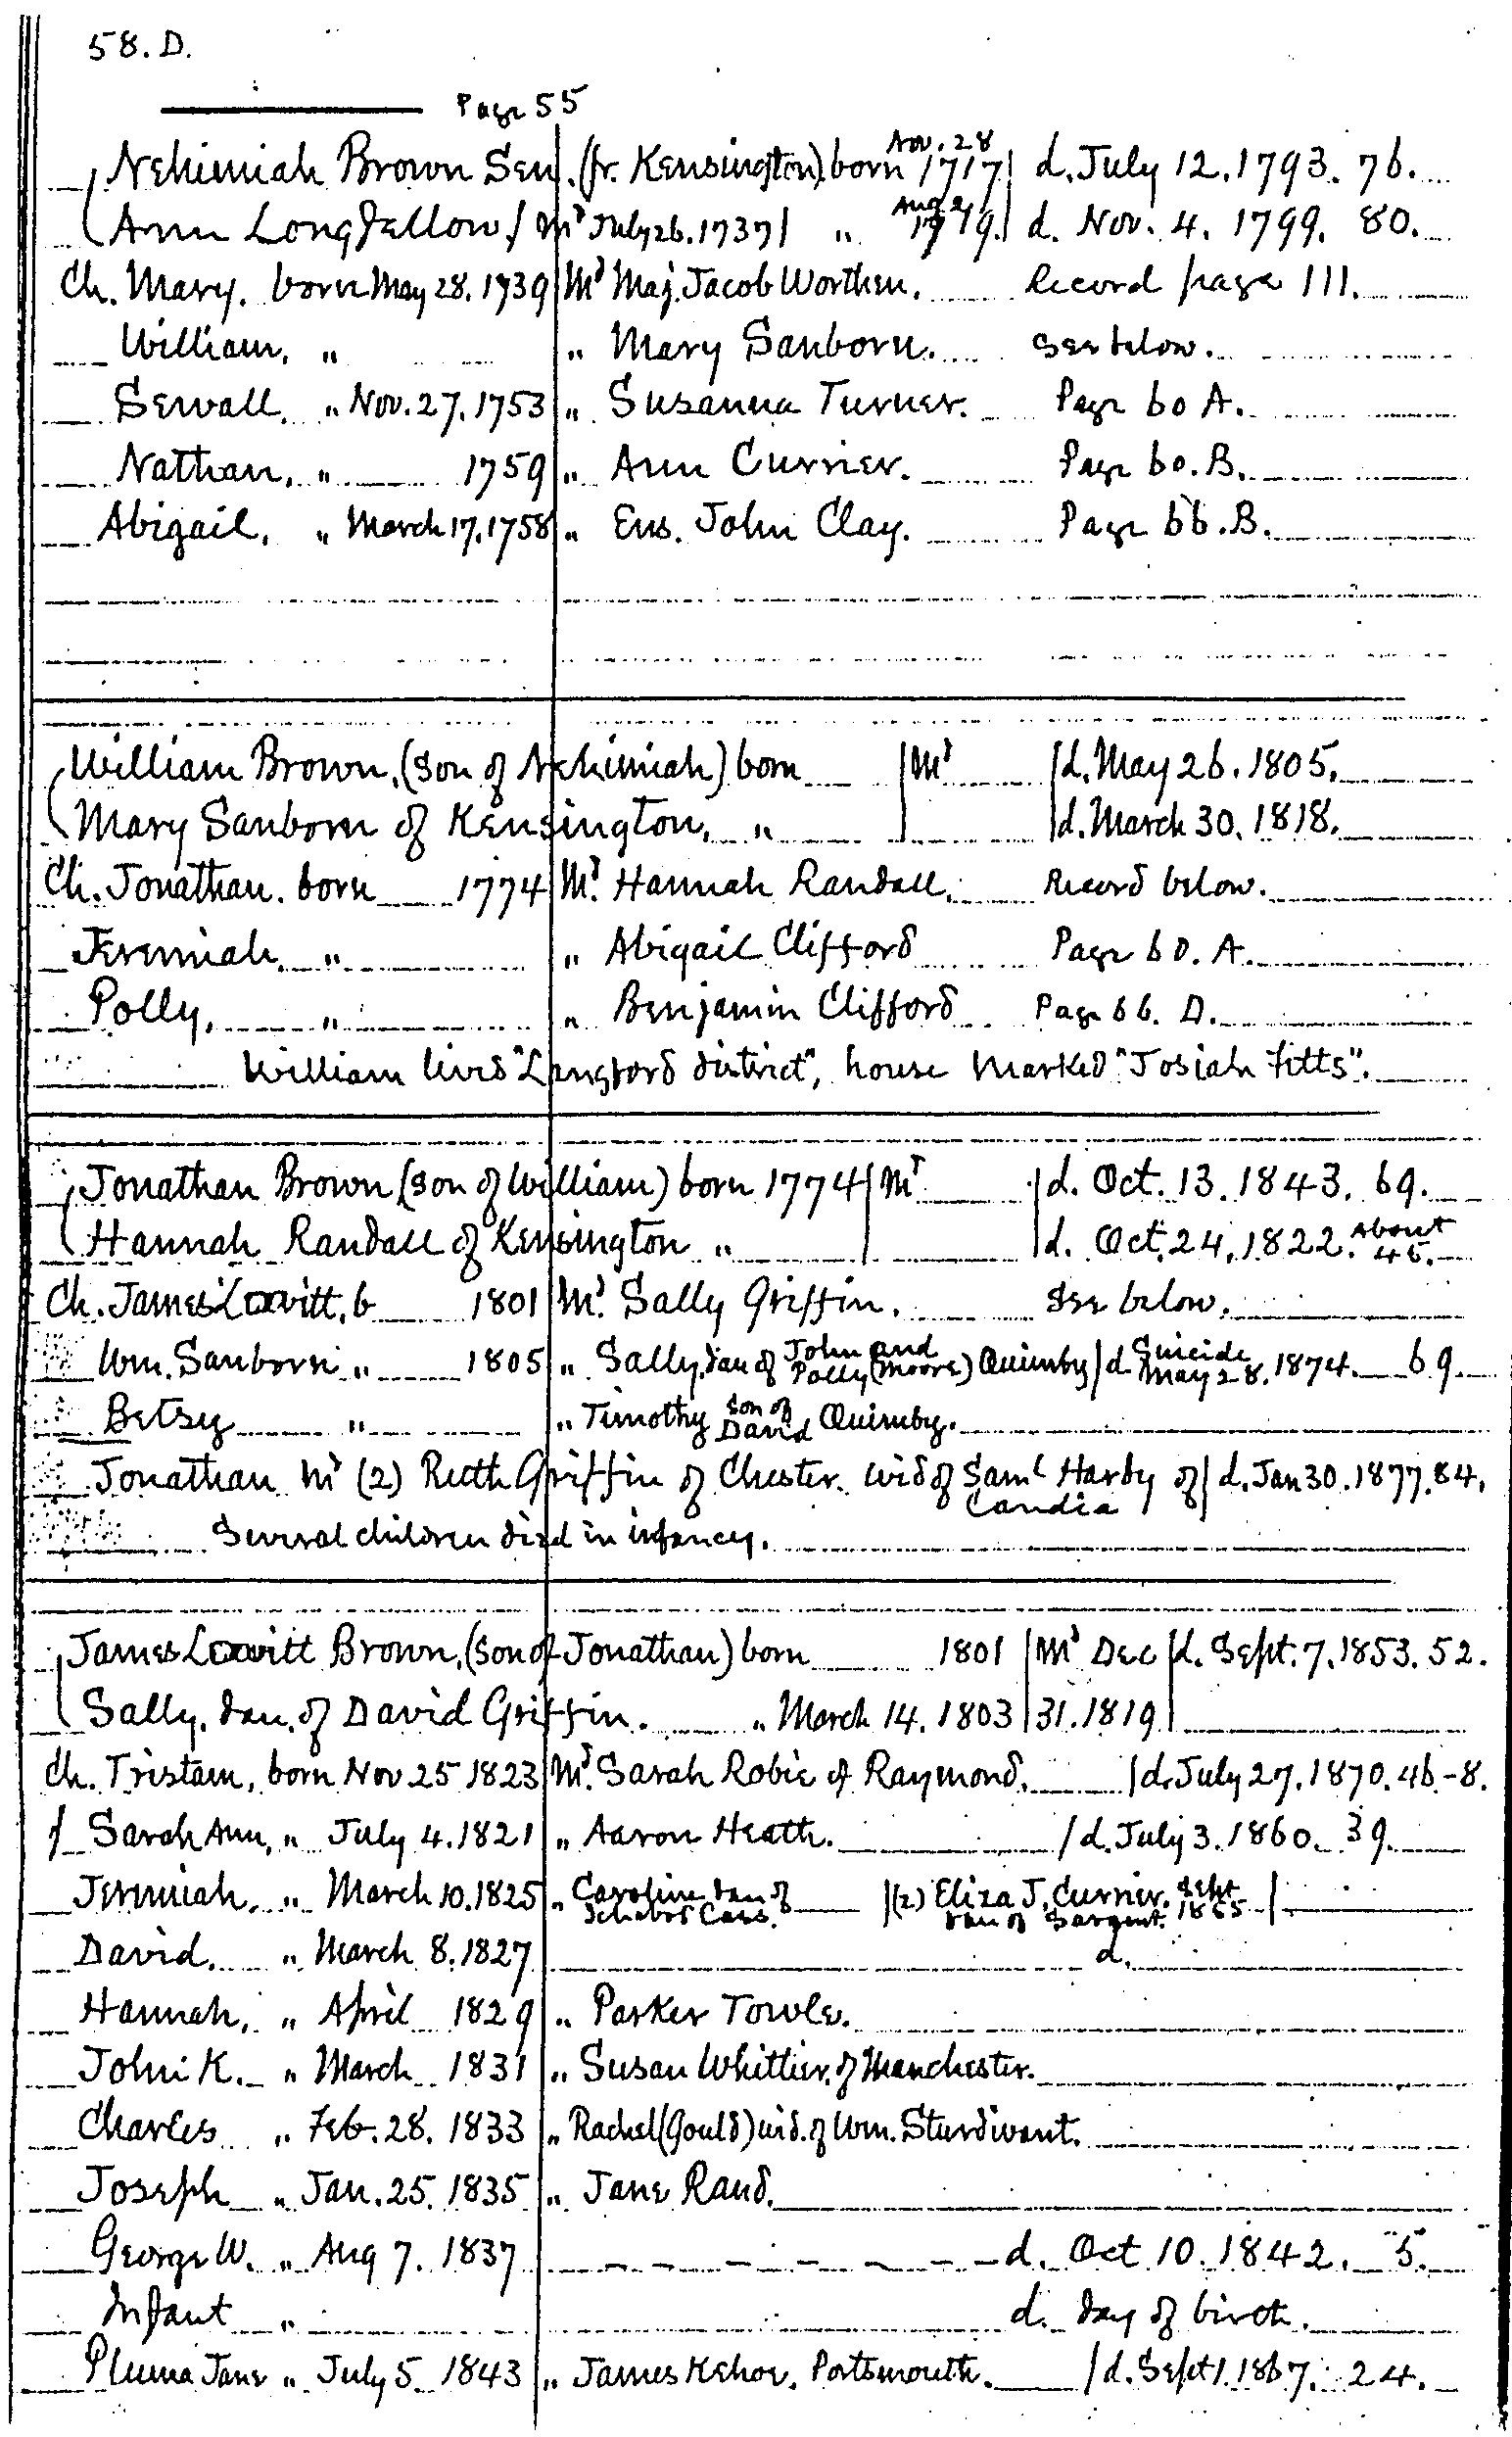 58. D.
Page 55
Nehimiah Brown Sen. (fr. Kensington) born Nov. 28 1717 | d. July 12. 1793. 76.
Ann Longfellow / Md July 26. 1737 | " 1719. | d. Nov. 4. 1799. 80.
Ch. Mary. born May 28. 1739 Md Maj. Jacob Worthen. Record page 111.
William, " " Mary Sanborn. See below.
Sewall. " Nov. 27. 1753 " Susanna Turner. Page 60 A.
Nathan, " 1759 " Ann Currier. Page 60. B.
Abigail, " March 17. 1758 " Ens. John Clay. Page 66. B.
William Brown, (son of Nehimiah) born | Md | d. May 26. 1805.
Mary Sanborn of Kensington, " | d. March 30. 1818.
Ch. Jonathan. born 1774 Md. Hannah Randall. Record below.
Jeremiah. " " Abigail Clifford Page 60. A.
Polly, " " Benjamin Clifford Page 66. D.
William lived "Langford district", house marked "Josiah Fitts".
Jonathan Brown (son of William) born 1774 | Md | d. Oct. 13. 1843. 69.
Hannah Randall of Kensington " | d. Oct. 24. 1822. About 45.
Ch. James Lovitt, b 1801 Md. Sally Griffin. See below.
Wm. Sanborn " 1805 " Sally, dau of John and Polly (Moore) Quimby | d. Suicide May 28. 1874. 69.
Betsy " " Timothy son of David Quimby.
Jonathan Md (2) Ruth Griffin of Chester. wid of Saml Hardy of Candia | d. Jan 30. 1877. 84.
Several children died in infancy.
James Lovitt Brown, (son of Jonathan) born 1801 | Md Dec | d. Sept. 7. 1853. 52.
Sally. dau. of David Griffin. " March 14. 1803 | 31. 1819 |
Ch. Tristam, born Nov 25 1823 Md. Sarah Robie of Raymond. | d. July 27. 1870. 46.-8.
Sarah Ann, " July 4. 1821 " Aaron Heath. / d. July 3. 1860. 39.
Jeremiah, " March 10. 1825 " Caroline dau of Ichabod Cass. | (2) Eliza J. Currier. Sept 1865 dau of Sargent. |
David. " March 8. 1827 d.
Hannah, " April 1829 " Parker Towle.
John K. " March 1831 " Susan Whittier. of Manchester.
Charles " Feb. 28. 1833 " Rachel (Gould) wid. of Wm. Sturdivant.
Joseph " Jan. 25. 1835 " Jane Rand.
George W. " Aug 7. 1837 d. Oct 10. 1842. 5.
Infant " d. day of birth.
Pluma Jane " July 5 1843 " James Kehoe, Portsmouth. / d. Sept 1. 1867. 24.